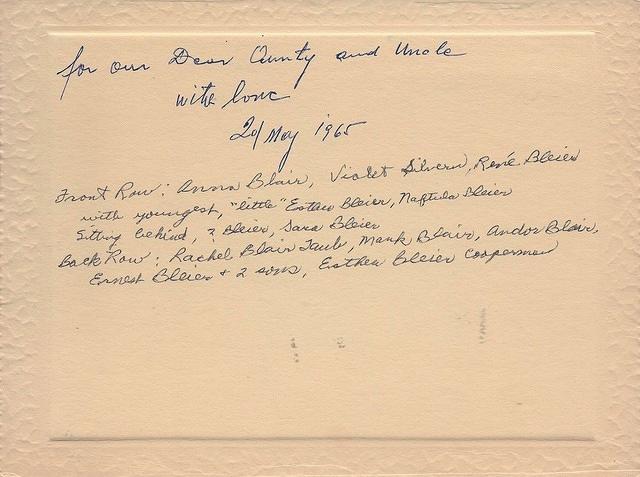 for our Dear Aunty and Uncle
with love
20/May 1965
Front Row: Anna Blair, Violet Silvern, René Bleier
with youngest, "little" Esther Bleier, Naftula Bleier
Sitting behind, ? Bleier, Sara Bleier
Back Row: Rachel Blair Taub, Mark Blair, Andor Blair,
Ernest Bleier + 2 sons, Esther Bleier Cooperman